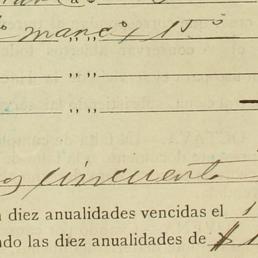 marzo 15
" "
" "
cincuenta
diez anualidades vencidas el 1
ndo las diez anualidades de $ 1